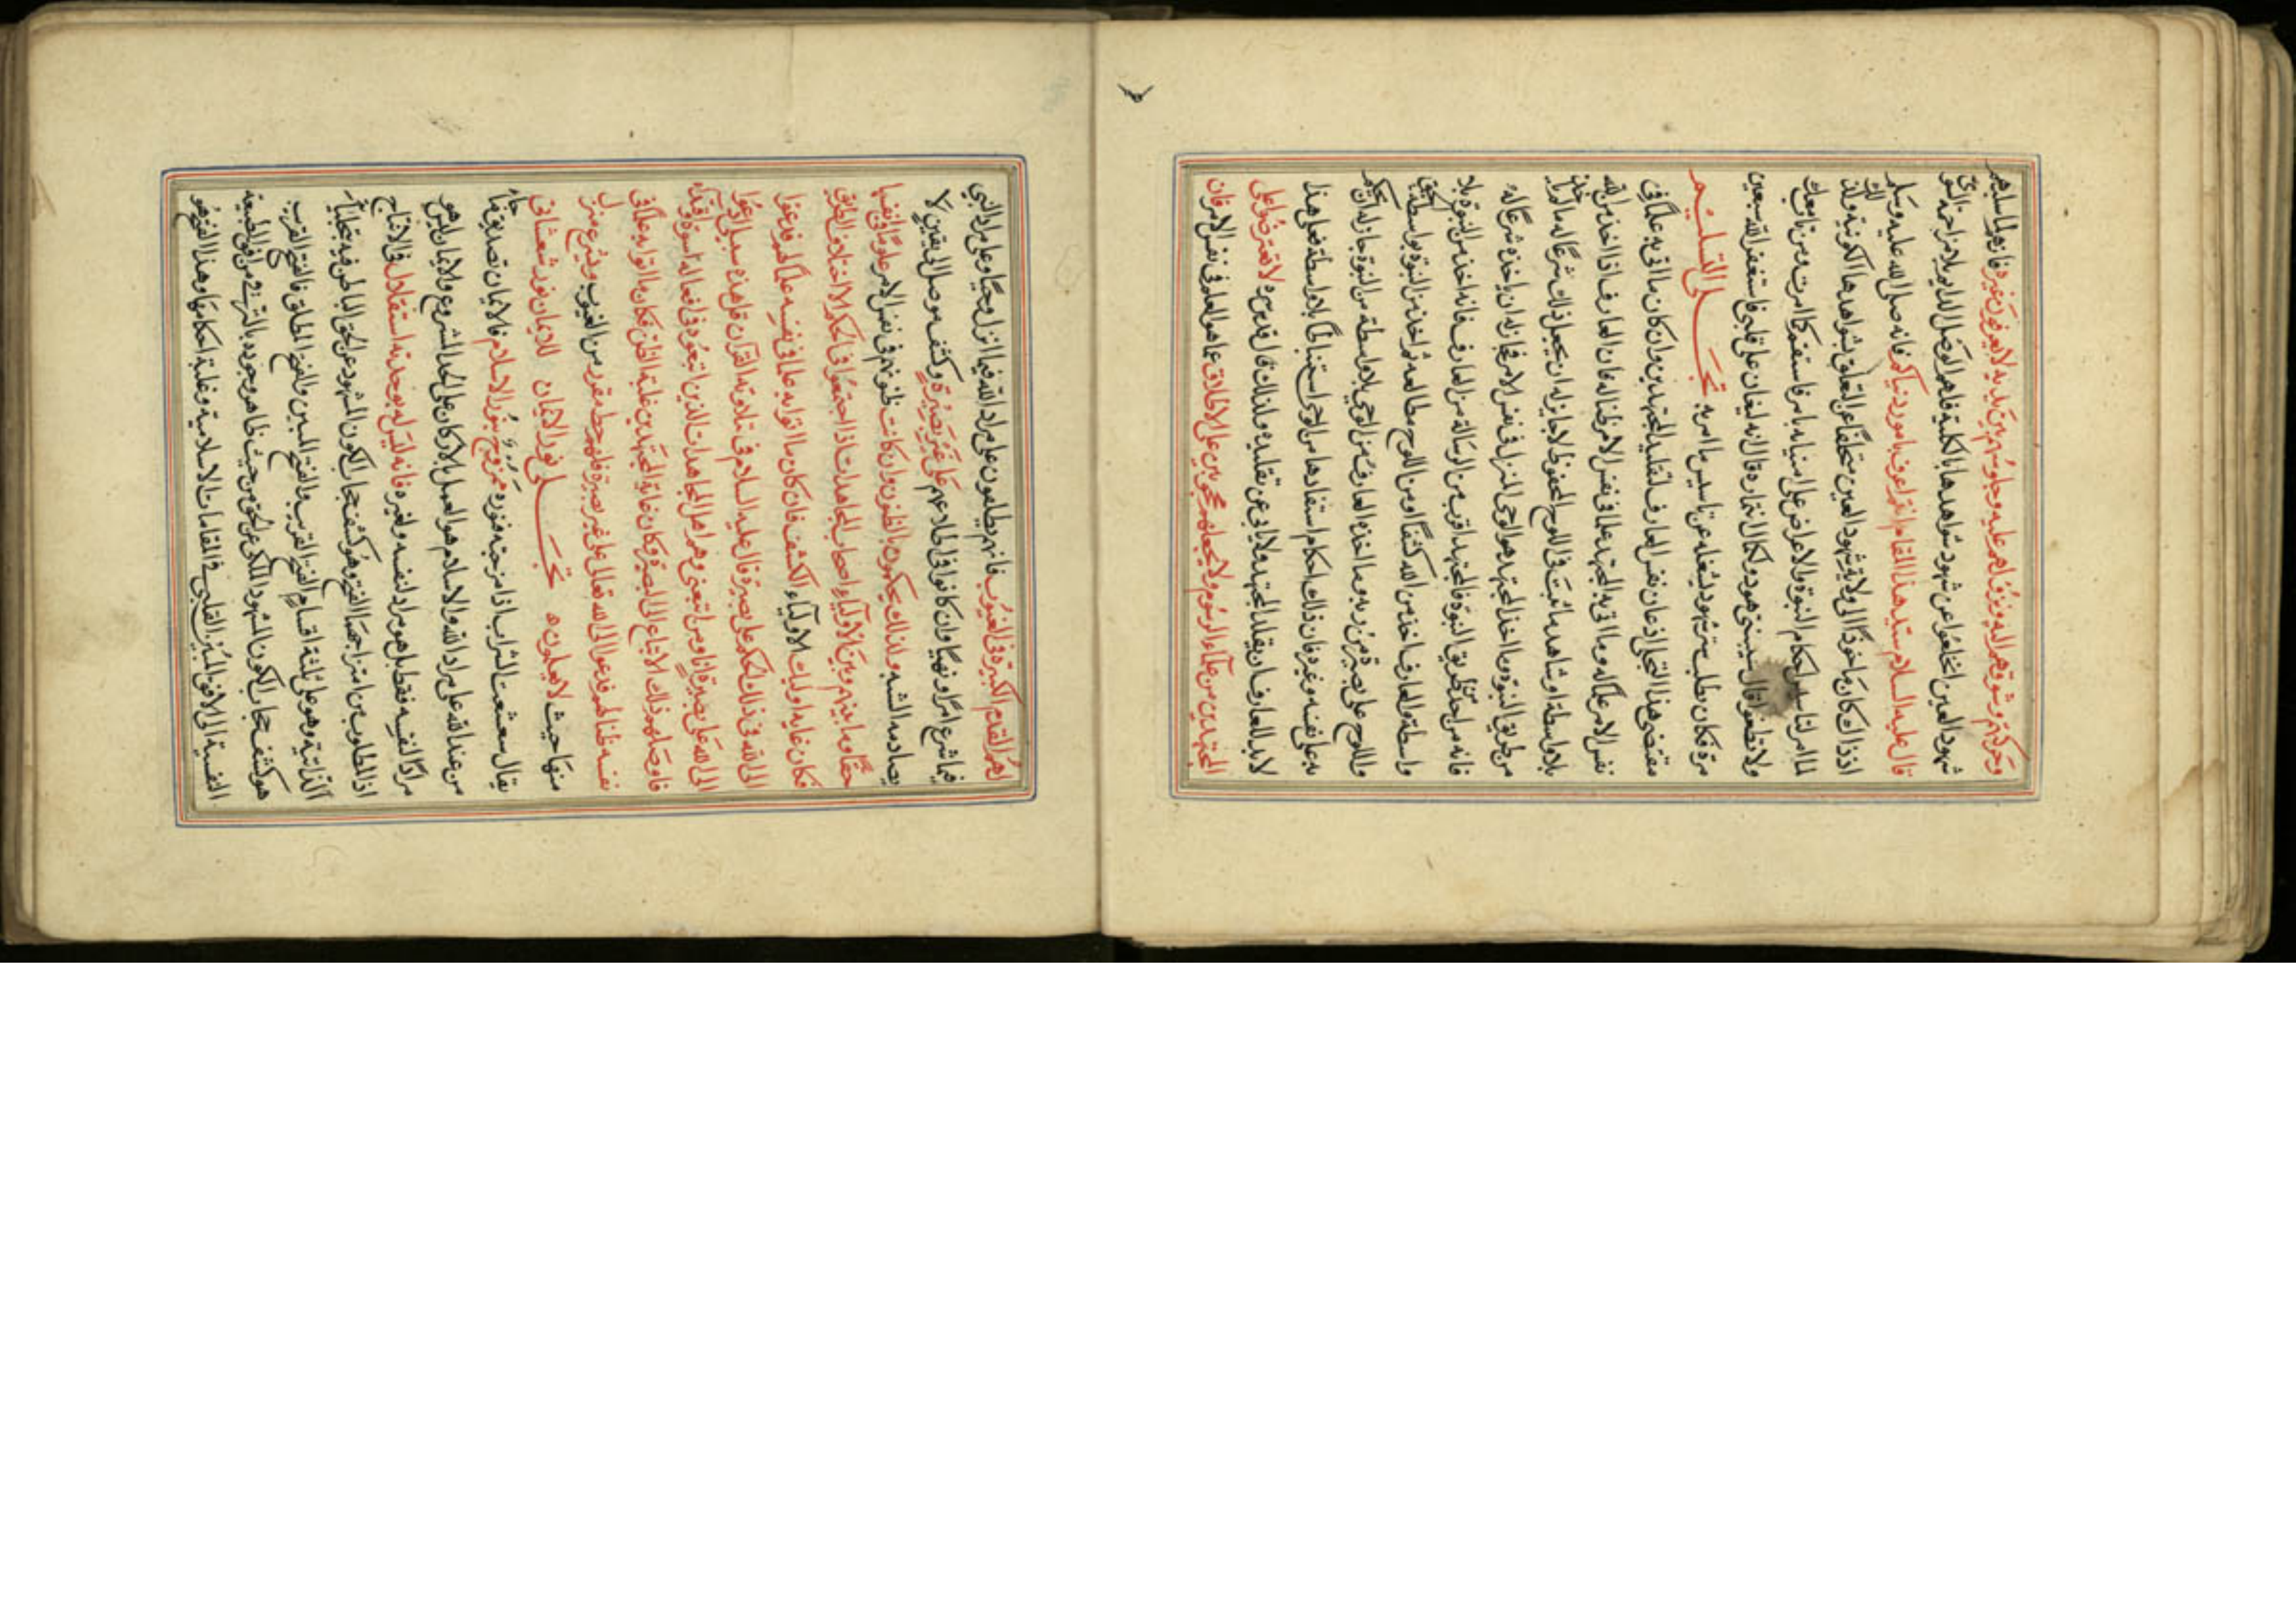 وحركتهم وشوقهم اليه ونزولهم عليه وجلوسهم بين يديه لا يعرفون غيره فانهم لما شاهدهم
شهود العين انخلعوا عن شهود شواهدها بالكلية فلهم الوصل الدايم بلا مزاحمة السوى
قال عليه السلام سيد هذا المقام انتم اعرف بامور دنياكم فانه صلى الله عليه وسلم
اذ ذاك كان مأخوذا الى ولاية شهود العين متخلفا عن التعلق بشواهدها الكونية ولذلك
لما امر لتأسيس احكام النبوة والاعراض على امنياته بامر فاستقم كما امرت ومن تاب معك
ولا تطغوا قال شيبتني هود ولكمال انتهائه قال انه ليغان على قلبي فاستغفر الله سبعين
مرة فكان يطلب ستر شهود يشغله عن تاسيس ما امر به تجلى التسليم
مقتضى هذا التجلي اذعان نفس العارف لتقليد المجتهدين وان كان ما اتى به علما في
نفس الامر علما له وما اتى به المجتهد علما في نفس الامر ظنا له فان العارف اذا اخذ من الله
بلا واسطة او شاهد ما ثبت في اللوح المحفوظ لا جايز له ان يجعل ذلك شرعا له ما لم ياخذه
من طريق النبوة وما اخذ المجتهد هو الوحي المنزل في نفس الامر فجاز له ان ياخذه شرعا له
فانه من احد طريق النبوة فالمجتهد اقرب من الرسالة من العارف فانه اخذ من النبوة بلا
واسطة والعارف اخذ من الله كشفا او من اللوح مطالعة ثم اخذ من النبوة بواسطة الحق
واللوح على بصيرة من ربه وما اخذه العارف من الوحي بلا واسطة من النبوة جاز له ان يحكم
به على نفسه وغيره فان ذلك احكام استفادها من الوحي استنباطا بلا واسطة فعلى هذا
لا بد للعارف ان يقلد المجتهد ولا يابى عن تقليده ولذلك قال قدس سره لا تعترضوا على
المجتهدين من علماء الرسوم ولا تجعلوهم محجوبين على الاطلاق عما هو المعلوم في نفس الامر فان
لهم القدم الكبيرة في الغيوب فانهم مطلعون على مراد الله فيما انزل وحيا وعلى مراد النبي
فيما شرع امرا ونهيا وان كانوا في اطلاعهم على غير بصيرة وكشف موصل الى يقين لا
يصادمه الشبه ولذلك يحكمون بالظنون وان كانت ظنونهم في نفس الامر علوما في نفسها
حقا وما بينهم وبين الاولياء اصحاب المجاهدات اذا اجتمعوا في الحكم الا اختلاف الطريق
فكان غاية اوليك الاولياء الكشف فان كان ما اتوا به علما في نفسه علما لهم فدعوا
الى الله في ذلك الحكم على بصيرة قال عليه السلام في تلاوته القرآن قل هذه سبيلي ادعوا
الى الله على بصيرة انا ومن اتبعني وهم اهل المجاهدات الذين اتبعوه في افعاله اسوة واقتداء
فاوصلهم ذلك الاتباع الى البصيرة وكان غاية المجتهدين غلبة الظن فكان ما اتوا به علما في
نفسه ظنا لهم فدعوا الى الله تعالى على غير بصيرة فلهم حظ مقرر من الغيوب وشرع منزل
منها حيث لا يعلمون تجلى نور الايمان للايمان نور شعشعاني
يقال شعشعت الشراب اذا مزجته فنوره ممزوج بنور الاسلام فالايمان تصديق بما جاء
من عند الله على مراد الله والاسلام هو العمل بالاركان على الحد المشروع والايمان ليس هو
مرادا لنفسه فقط بل هو مراد لنفسه ولغيره فانه ليس له بوحدته استقلال في الانتاج
اذ المطلوب من امتزاجهما الفتح وهو كشف حجاب الكون المشهود عن الحق الباطن فيه بتجلياته
الذاتية وهو على ثلثة اقسام الفتح القريب والفتح المبين والفتح المطلق فالفتح القريب
هو كشف حجاب الكون المشهود الملكي عن الحق من حيث ظاهر وجوده بالترقي من افق الطبيعة
النفسية الى الافق المبين القلبي في المقامات الاسلامية وغلبة احكامها وهذا الفتح هو